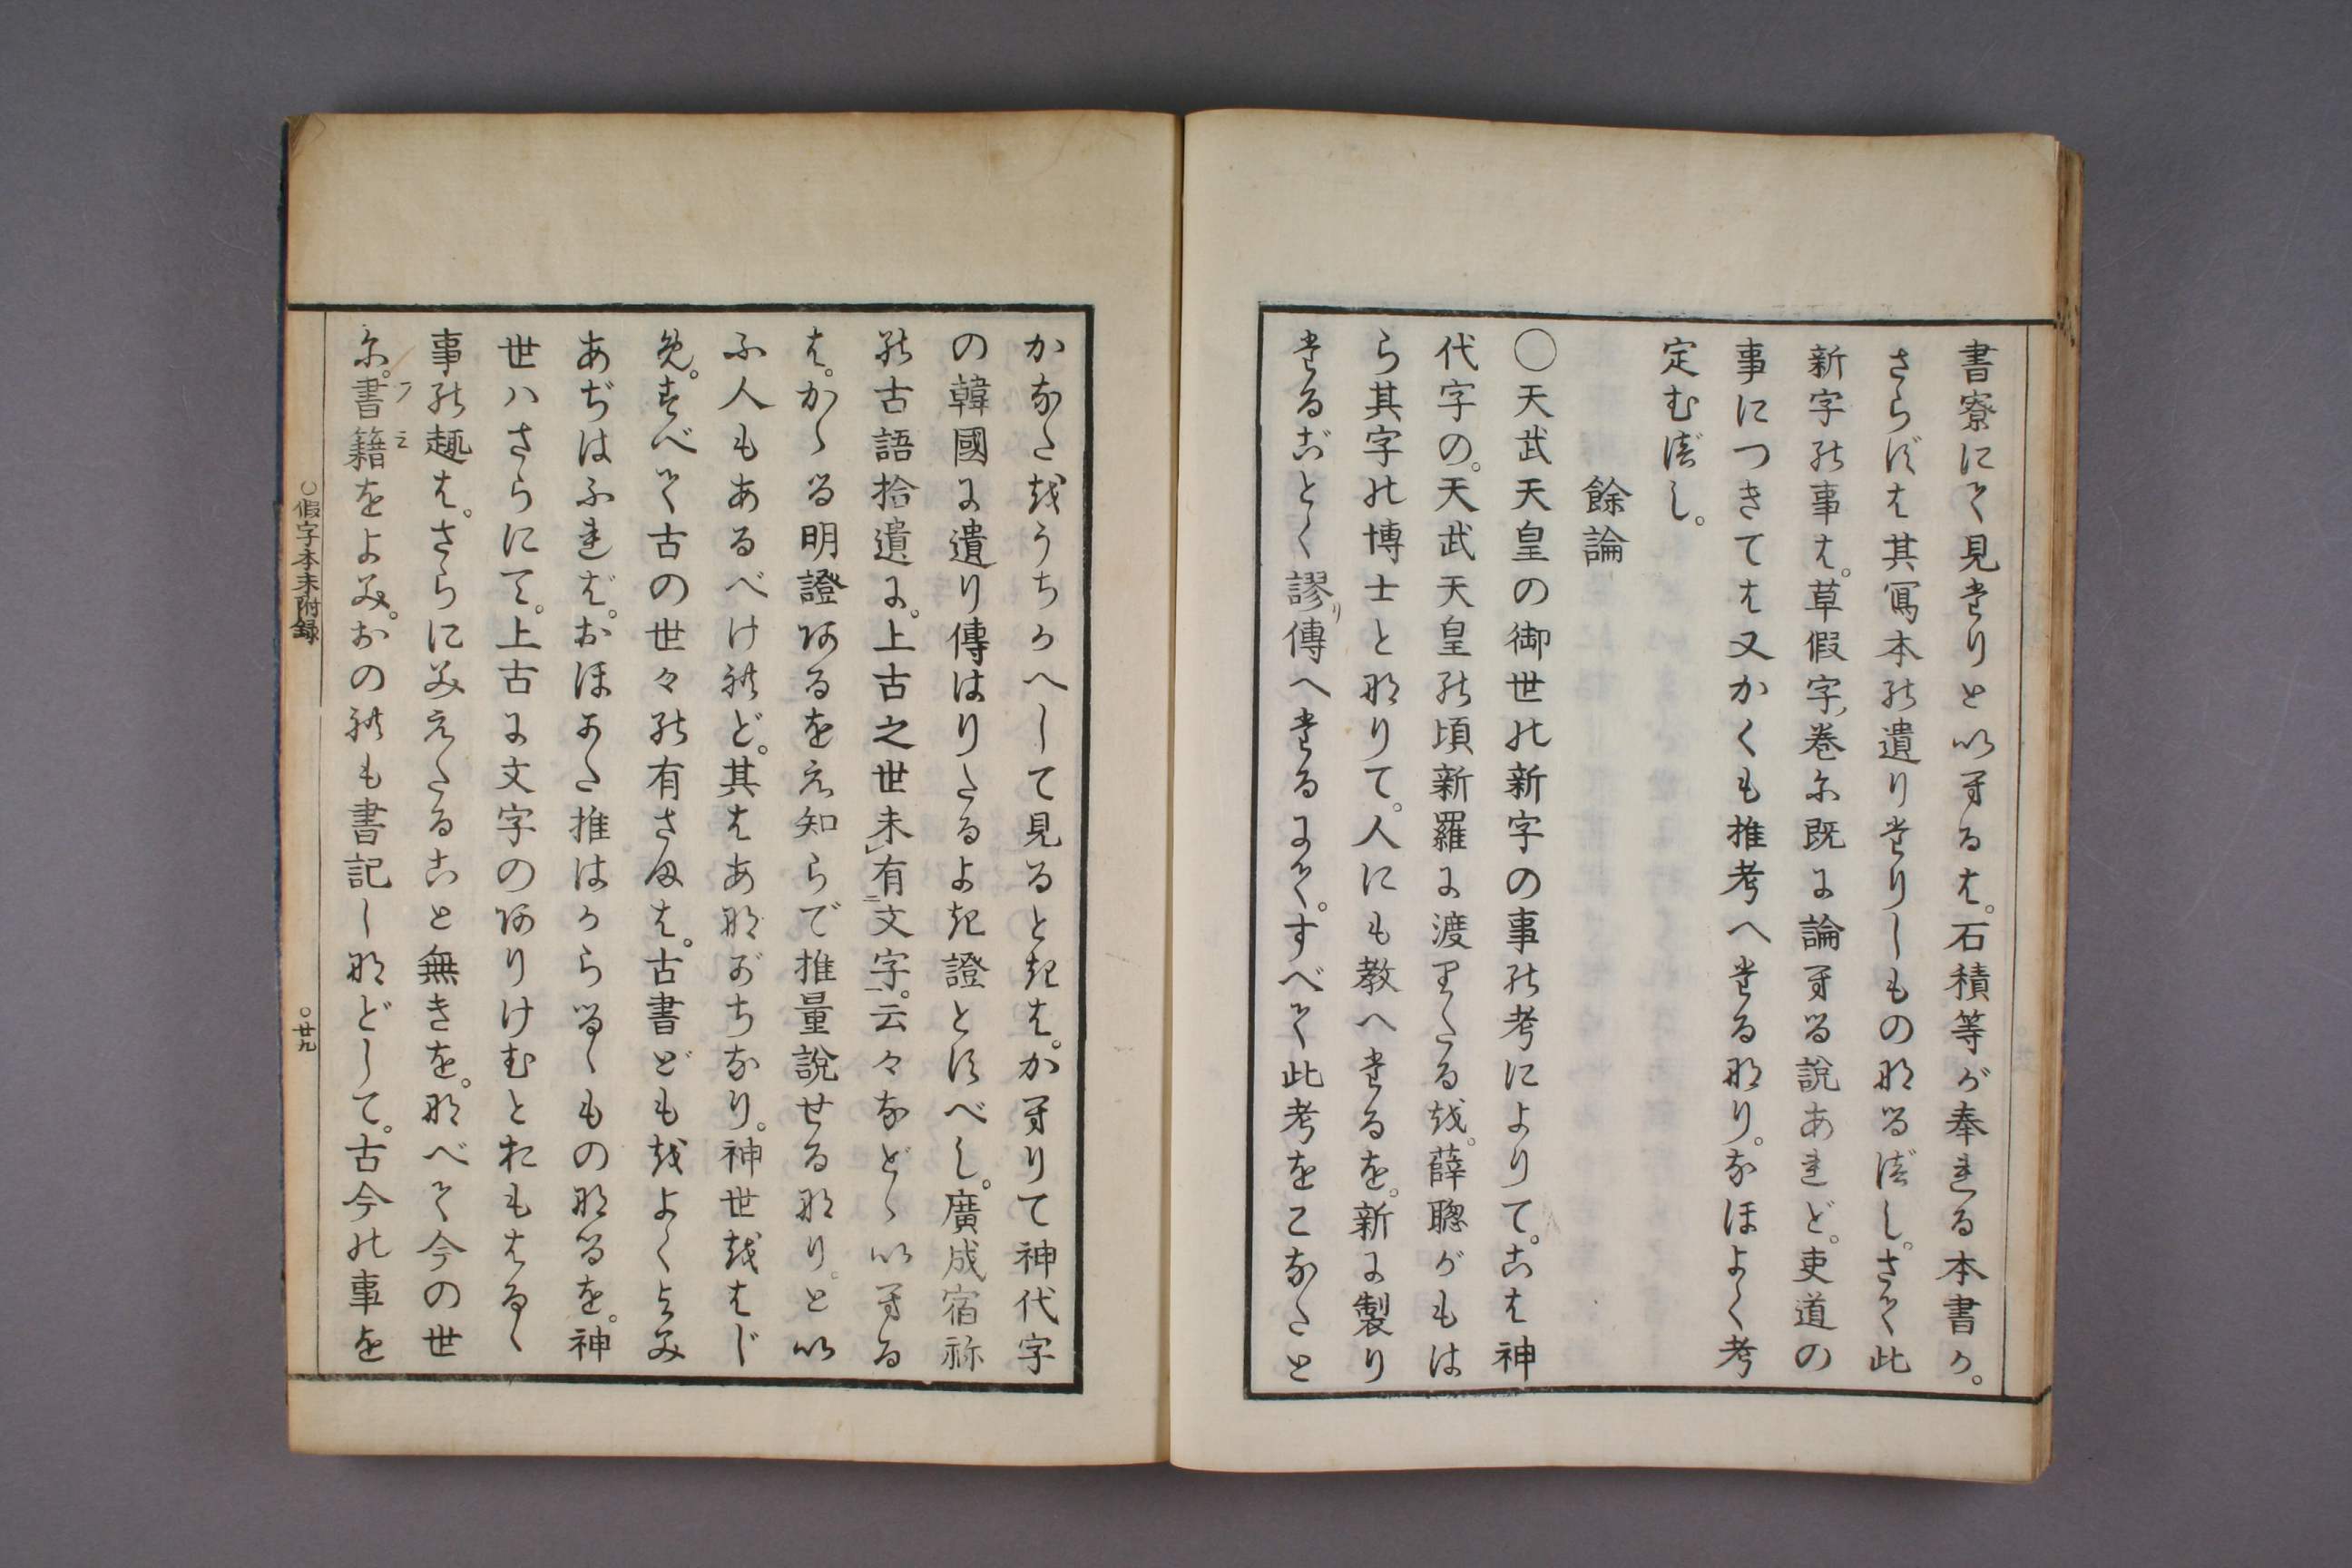 書寮にて見たりといへるは。石積等が奉れる本書か。
さらずは其冩本の遺りたりしものなるべし。さて此
新字の事は。草假字ノ巻に既に論へる説あれど。吏道の
事につきては又かくも推考へたるなり。なほよく考
定むべし。
餘論
〇天武天皇の御世の新字の事の考によりて。こは神
代字の。天武天皇の頃新羅に渡りたるを。薛聰がもは
ら其字の博士となりて。人にも教へたるを。新に製り
たるごとく謬リ傳へたるにて。すべて此考をこなたと
かなたをうちかへして見るときは。かへりて神代字
の韓國に遺り傳はりたるよき證とすべし。廣成宿祢
の古語拾遺に。上古之世未レ有二文字一。云々などゝいへる
は。かゝる明證あるをえ知らで推量説せるなり。とい
ふ人もあるべけれど。其はあながちなり。神世をはじ
め。すべて古の世々の有さまは。古書どもをよくよみ
あぢはふれば。おほよそ推はからるゝものなるを。神
世ハさらにて。上古に文字のありけむとおもはるゝ
事の趣は。さらにみえたること無きを。なべて今の世
に。書籍フミをよみ。おのれも書記しなどして。古今の事を
〇假字本末附録
〇廿九